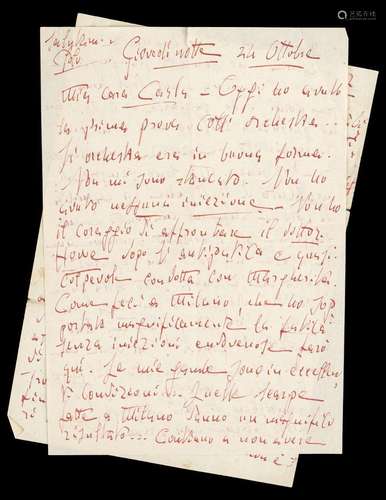 Giovedì notte 24 Ottobre
Mia cara Carla - Oggi ho avuto
la prima prova coll'orchestra...
L'orchestra era in buona forma.
Non mi sono stancato. Non ho
avuto nessuna iniezione. Non ho
il coraggio di affrontare il dottor
Howe dopo sì antipatica e quasi
colpevole condotta con Margherita.
Come feci a Milano, che ho sop
portato magnificamente la fatica
senza iniezioni endovenose farò
qui. Le mie gambe sono in eccellen
ti condizioni. Quelle scarpe
fatte a Milano fanno un magnifico
risultato... Continuo a non avere